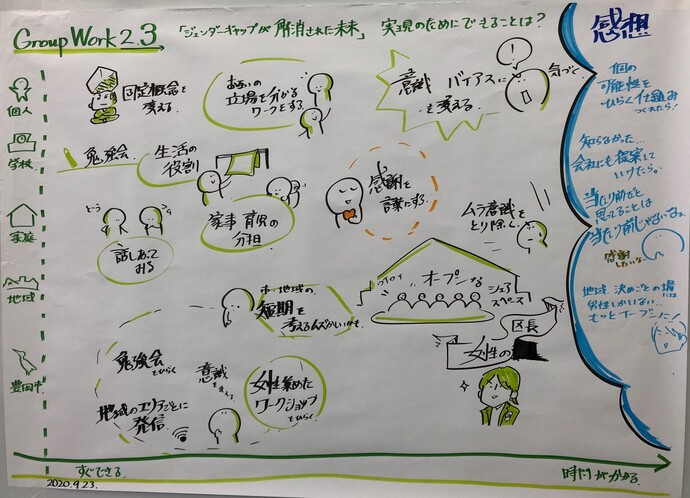 Group Work 2.3
「ジェンダーギャップが解消された未来」 実現のためにできることは?
感想
個人
学校
家庭
地域
豊岡市
固定概念を
変える
お互いの
立場を分かる
ワークをする。
意識
バイアスに
気づく
を変える。
勉強会
生活の
役割
感謝を
言葉にする。
どう
話しあって
みる
家事 育児の
分担
ムラ意識を
とり除く
オープンな
シェア
スペース
区長
女性の
地域の
短期を
勉強会
をひらく
意識
を変える
地域のエリアごとに
発信
女性集めた
ワークショップ
をひらく
個の
可能性を
ひらく仕組み
つくれたら!
知らなかった…
会社にも提案して
いけたら。
当たり前だと
思ってることは
当たり前じゃないなぁ
感謝
したいな
地域、決めごとの場
男性しかいない…
もっとオープンに!
すぐできる
時間がかかる
2020.9.23.